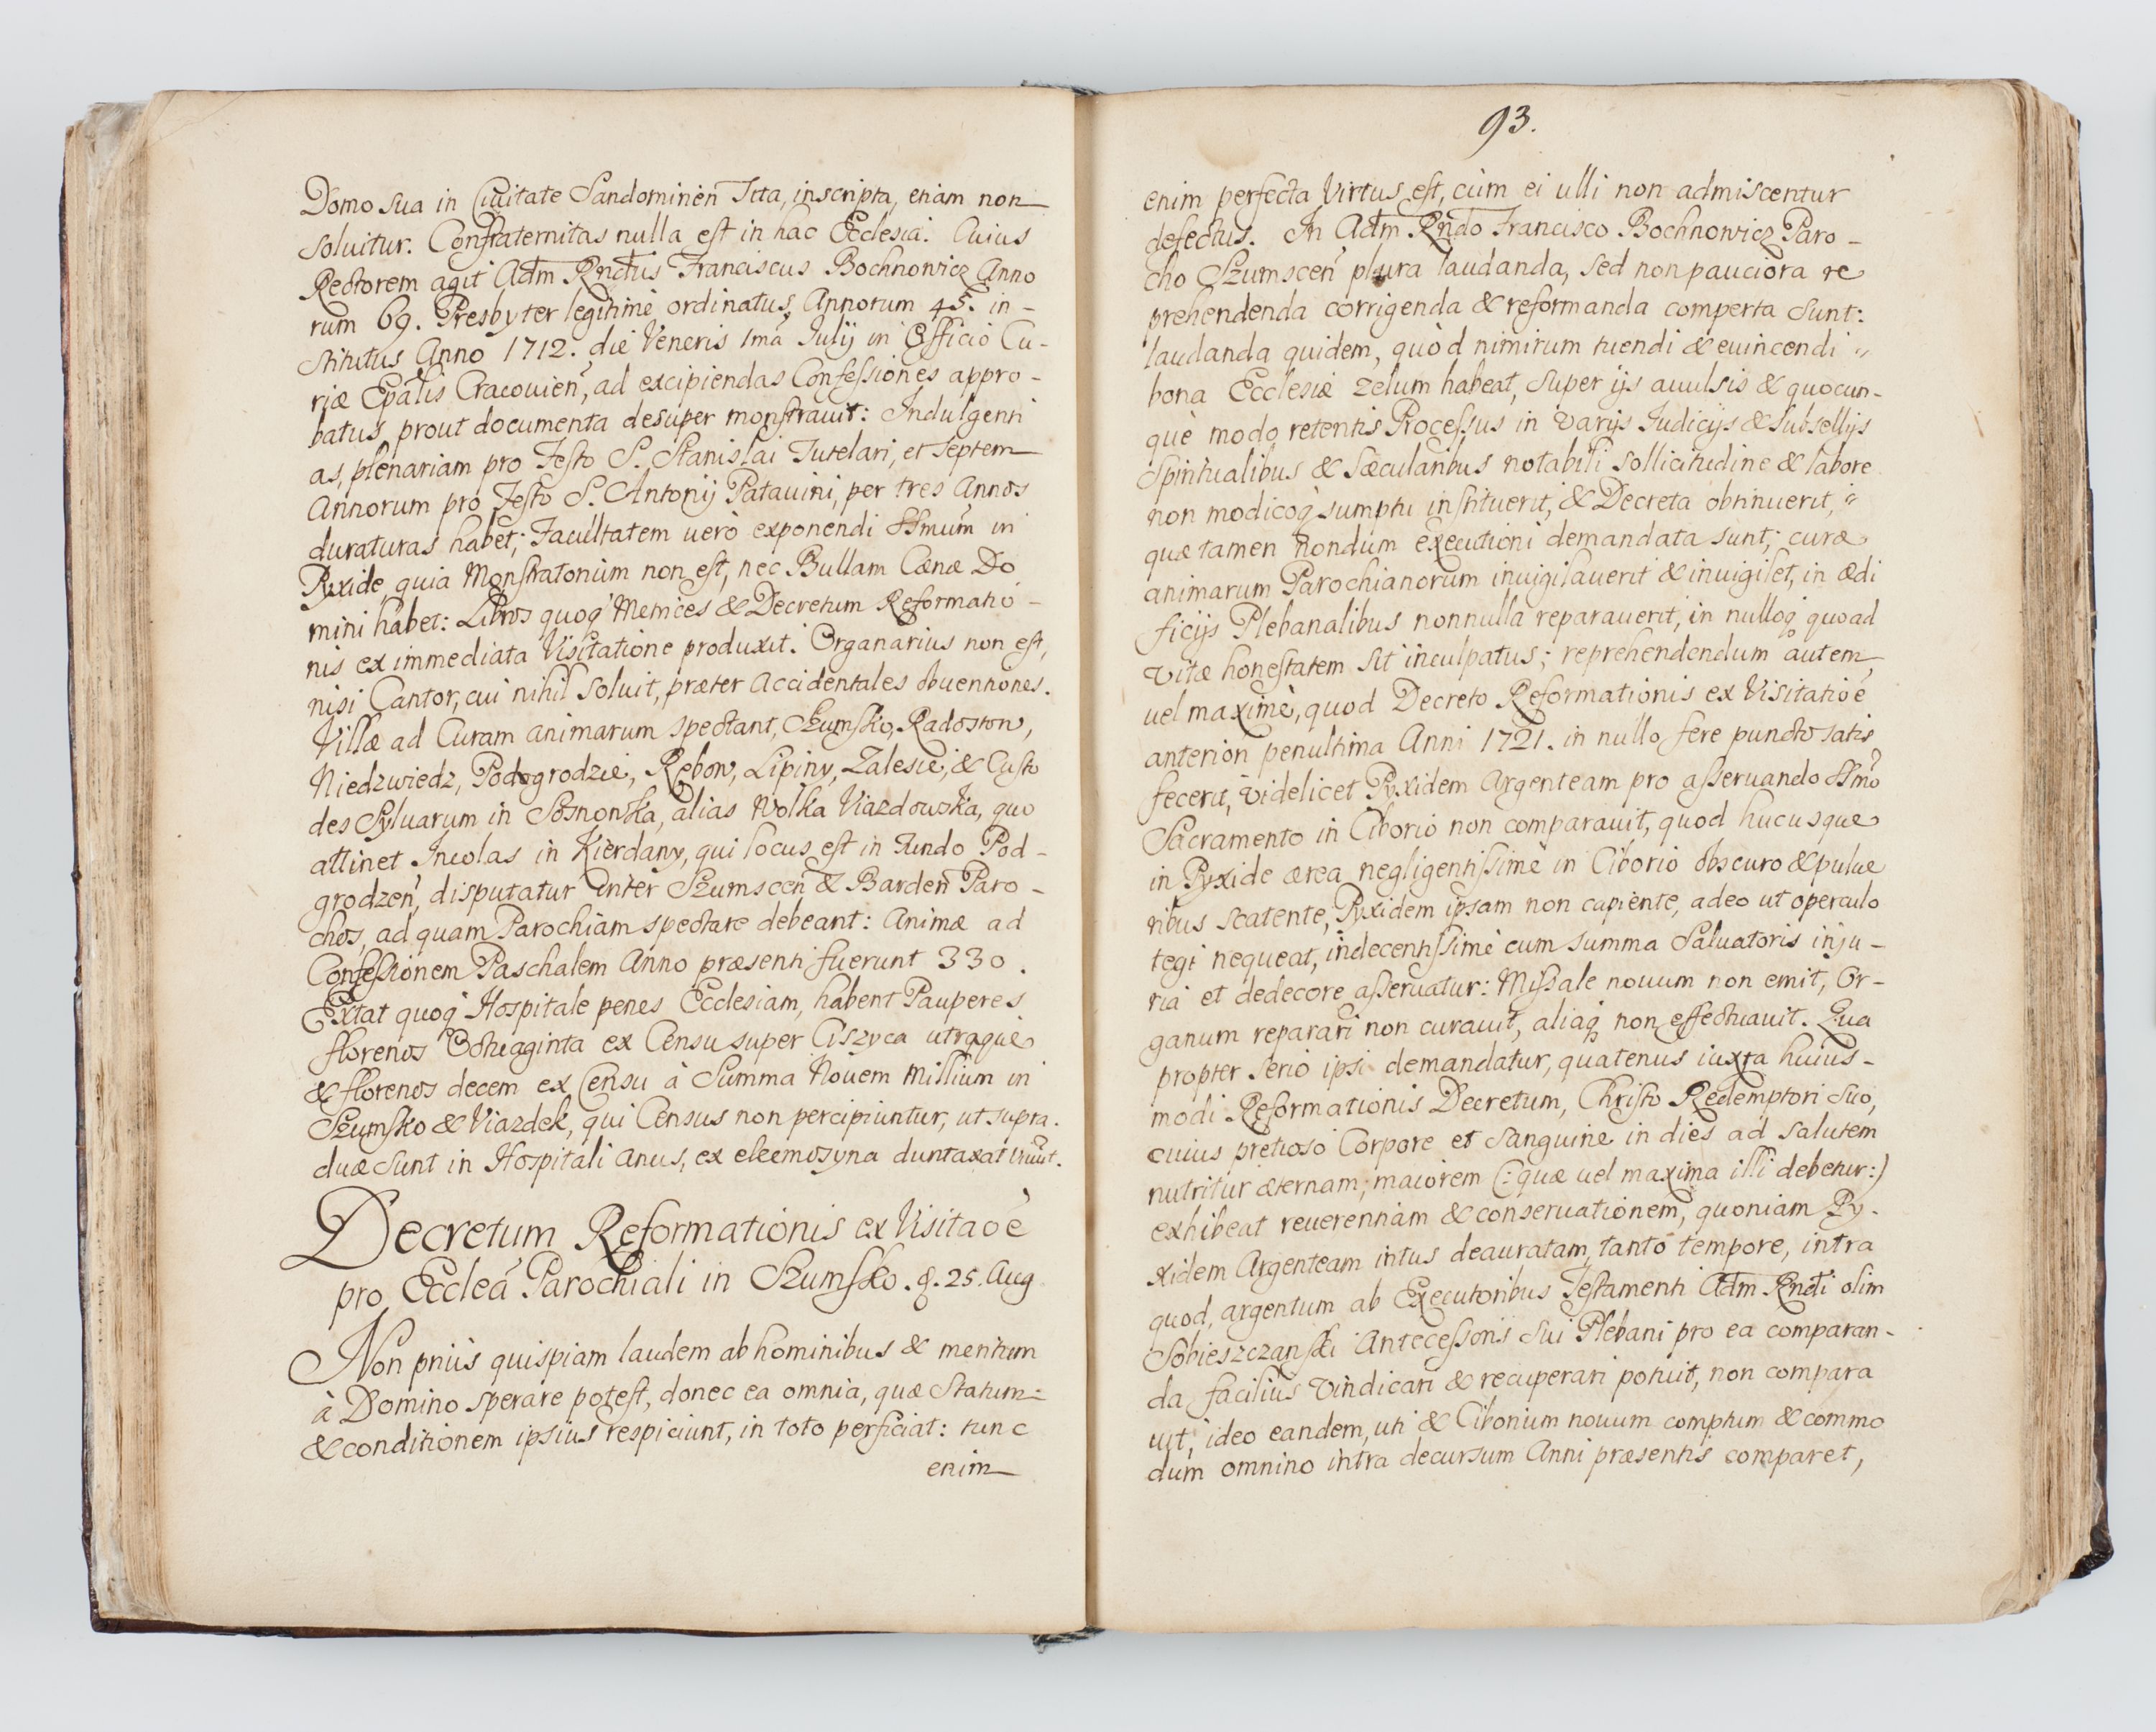 Domo sua in Civitate Sandominen̄ Itta, inscripta, etiam non
soluitur. Confraternitas nulla est in hac Ecclesia. Cuius
Rectorem agit Adm Rndus Franciscus Bochnowicz Anno
rum 69. Presbyter legitimè ordinatus, Annorum 45. in-
stitutus Anno 1712. die Veneris 1ma Julij in Officio Cu-
riæ Epālis Cracouien̄, ad excipiendas Confessiones appro-
batus prout documenta desuper monstrauit: Indulgenti
as, plenariam pro Festo S. Stanislai Tutelari, et septem
Annorum pro Festo S. Antonij Patauini, per tres Annos
duraturas habet; Facultatem uerò exponendi SSmum in
Pyxide, quia Monstratorium non est, nec Bullam Cænæ Do
mini habet: Libros quoq Metrices & Decretum Reformatio-
nis ex immediata Visitatione produxit. Organarius non est,
nisi Cantor, cui nihil soluit, præter Accidentales obuentiones.
Villæ ad Curam animarum spectant, Szumsko, Radostow,
Niedzwiedz, Podogrodzie, Rębow, Lipiny, Zalesie, & Custo
des Syluarum in Sosnowka, alias Wolka Viazdowska, quo
attinet Incolas in Kierdany, qui locus est in Fundo Pod-
grodzen̄, disputatur inter Szumscen̄ & Barden̄ Paro-
chos, ad quam Parochiam spectare debeant: Animæ ad
Confessionem Paschalem Anno præsenti fuerunt 330.
Extat quoq Hospitale penes Ecclesiam, habent Pauperes
florenos Octuaginta ex Censu super Ciszyca utraque
& florenos decem ex Censu à Summa Nouem Millium in
Szumsko & Viazdek, qui Census non percipiuntur, ut supra.
duæ sunt in Hospitali anus, ex eleemosyna duntaxat viuūt.
Decretum Reformationis ex Visitaōe
pro Eccleā Parochiali in Szumsko. d. 25. Aug
Non prius quispiam laudem ab hominibus & meritum
à Domino sperare potest, donec ea omnia, quæ Statum
& conditionem ipsius respiciunt, in toto perficiat: tunc
enim
93.
enim perfecta Virtus est, cùm ei ulli non admiscentur
defectus. In Adm Rndo Francisco Bochnowicz Paro-
cho Szumscen̄ plura laudanda, sed non pauciora re
prehendenda corrigenda & reformanda comperta sunt:
laudanda quidem, quòd nimirum tuendi & euincendi
bona Ecclesiæ zelum habeat, super ijs auulsis & quocun-
què modo retentis Processus in varijs Judicijs & Subsellijs
Spiritualibus & Sæcularibus notabili sollicitudine & labore
non modicoq sumptu instituerit, & Decreta obtinuerit,
quæ tamen nondum executioni demandata sunt; curæ
animarum Parochianorum inuigilauerit & inuigilet, in ædi
ficijs Plebanalibus nonnulla reparauerit, in nulloq quoad
vitæ honestatem sit inculpatus; reprehendendum autem
uel maximè, quod Decreto Reformationis ex Visitatiōe
anteriori penultima Anni 1721. in nullo fere puncto satis
fecerit, videlicet Pyxidem Argenteam pro asseruando SSmo
Sacramento in Ciborio non comparauit, quod hucusque
in Pyxide ærea negligentissimè in Ciborio obscuro & pulue
ribus scatente, Pyxidem ipsam non capiente, adeo ut operculo
tegi nequeat, indecentissimè cum summa Saluatoris inju-
ria et dedecore asseruatur: Missale nouum non emit, Or-
ganum reparari non curauit, aliaq non effectuauit. Qua
propter seriò ipsi demandatur, quatenus iuxta huius-
modi Reformationis Decretum, Christo Redemptori suo,
cuius pretioso Corpore et sanguine in dies ad salutem
nutritur æternam, maiorem (: quæ uel maxima illi debetur:)
exhibeat reuerentiam & conseruationem, quoniam Py-
xidem Argenteam intus deauratam, tanto tempore, intra
quod, argentum ab Executoribus Testamenti Adm Rndi olim
Sobieszczanski Antecessoris sui Plebani pro ea comparan-
da facilius vindicari & recuperari potuit, non compara
uit, ideo eandem, uti & Ciborium nouum comptum & commo
dum omnino intra decursum Anni præsentis comparet,